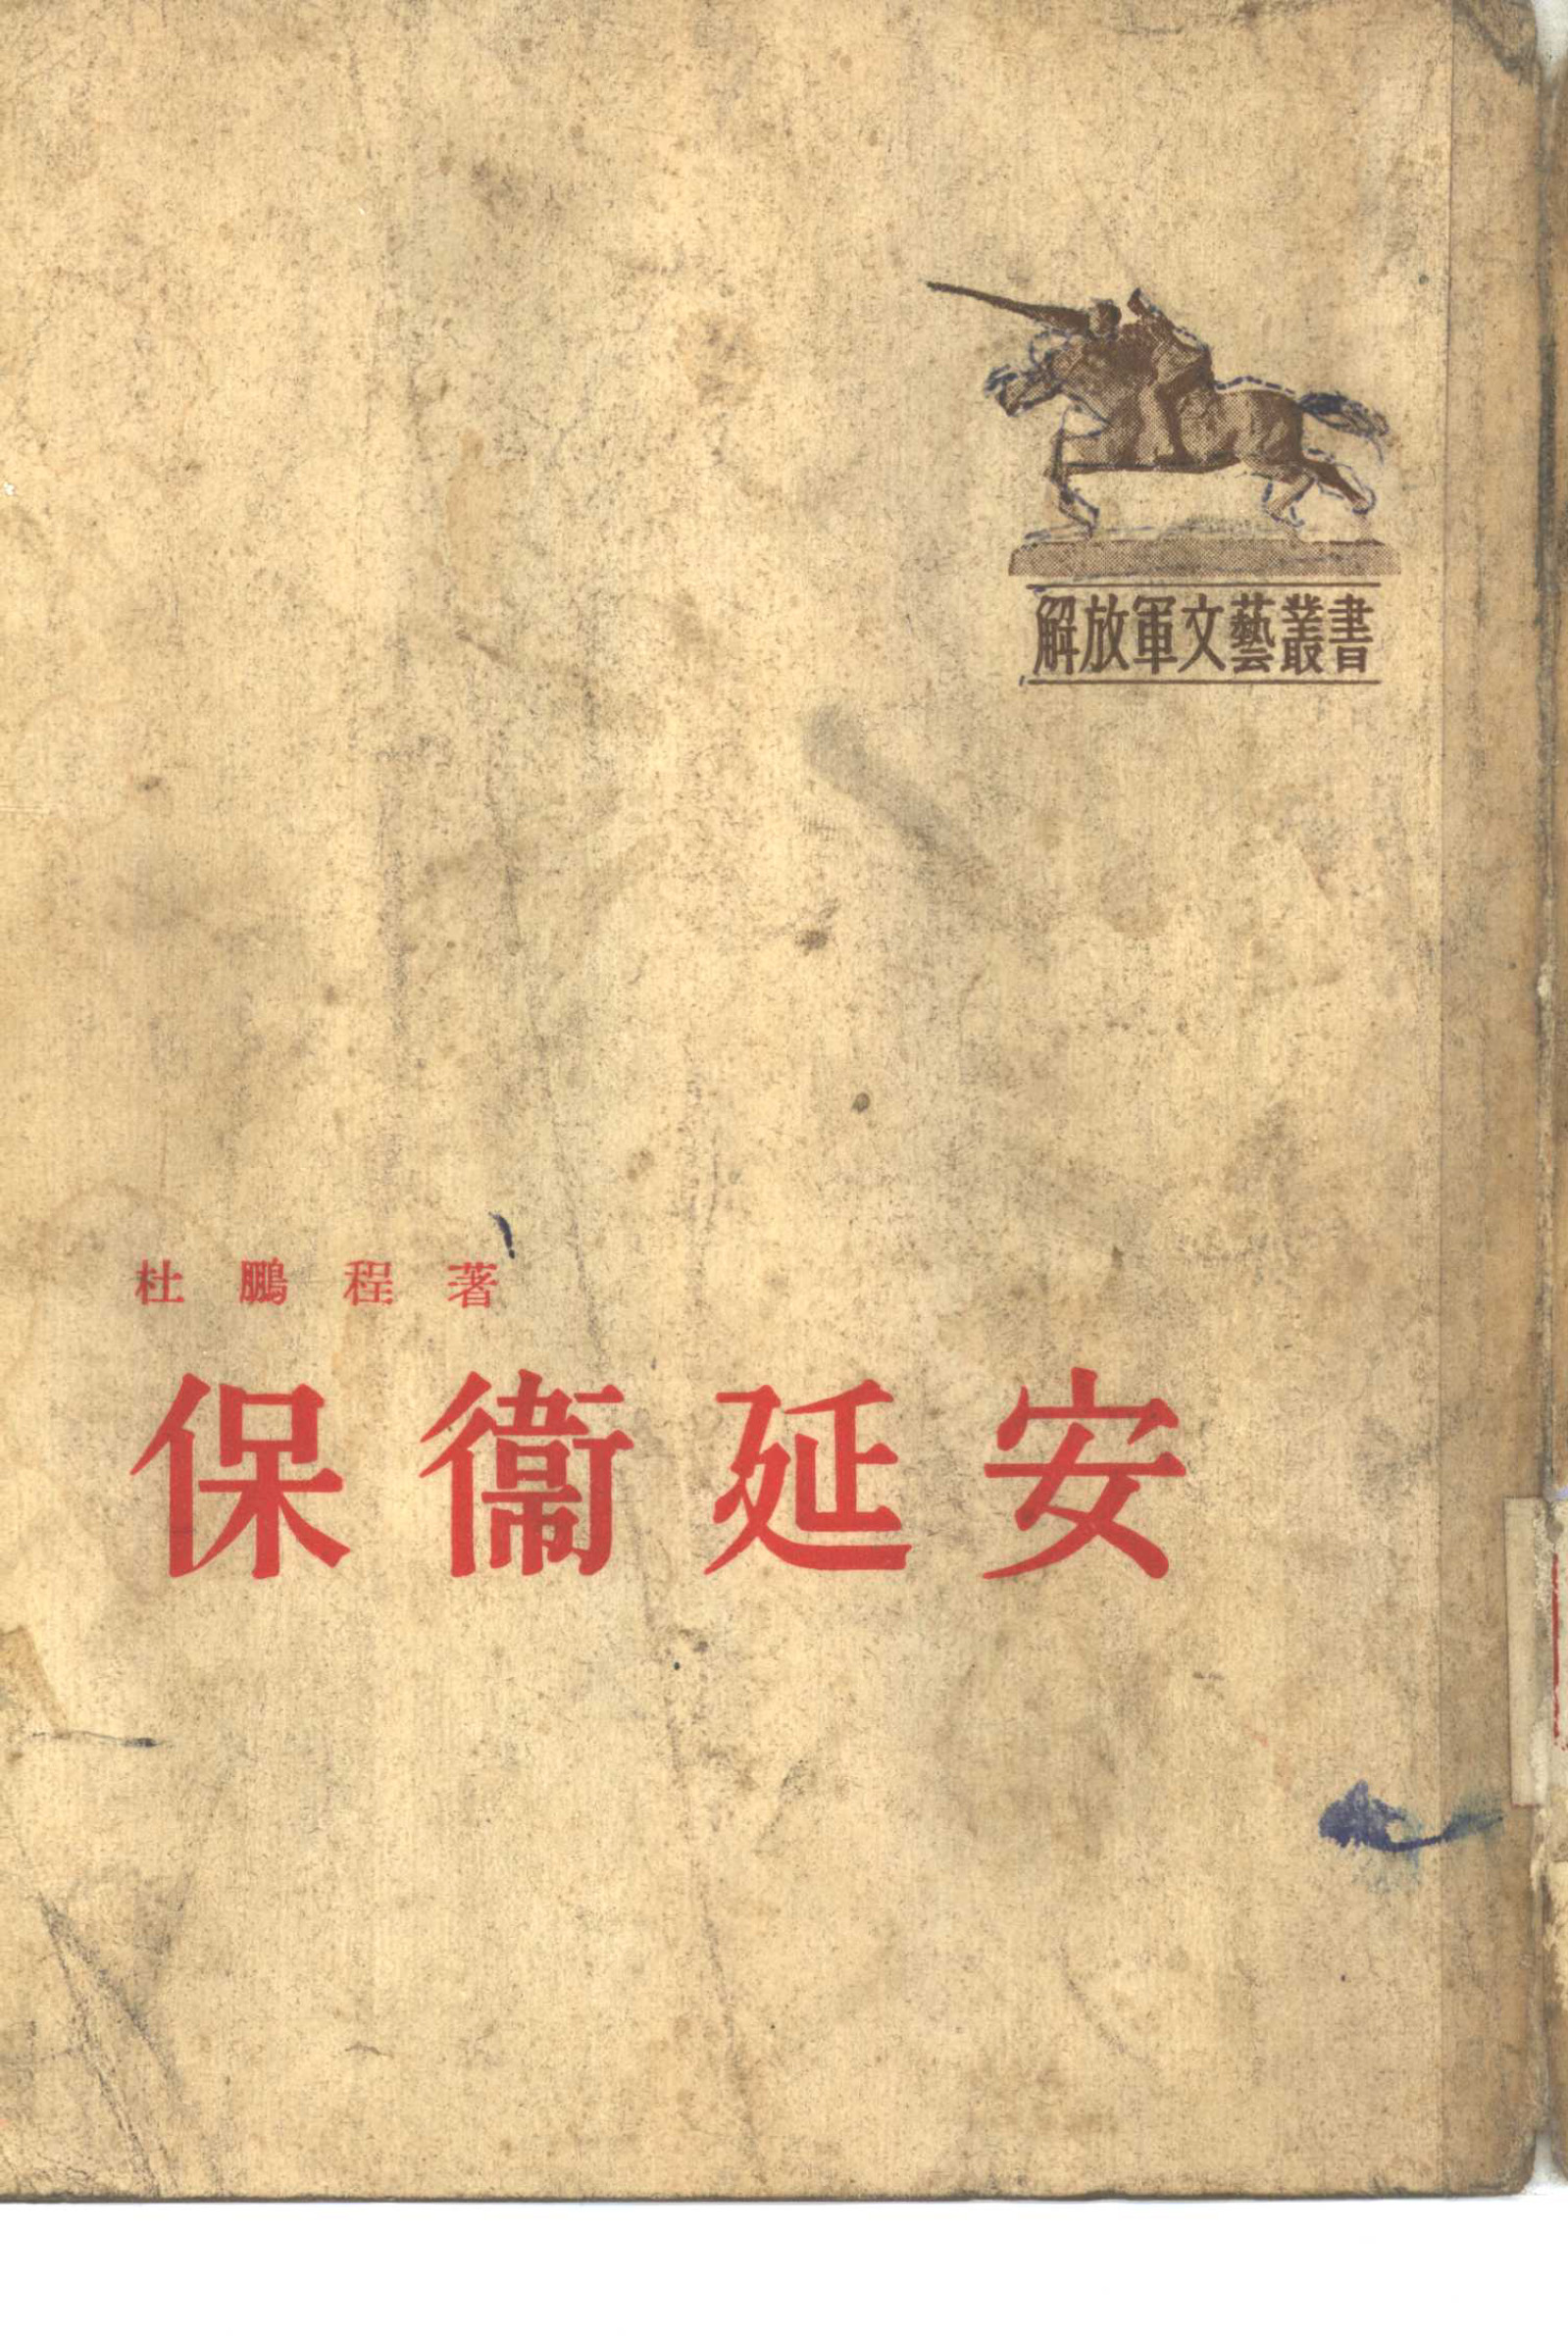 解放軍文藝叢書
杜鵬程著
保衞延安